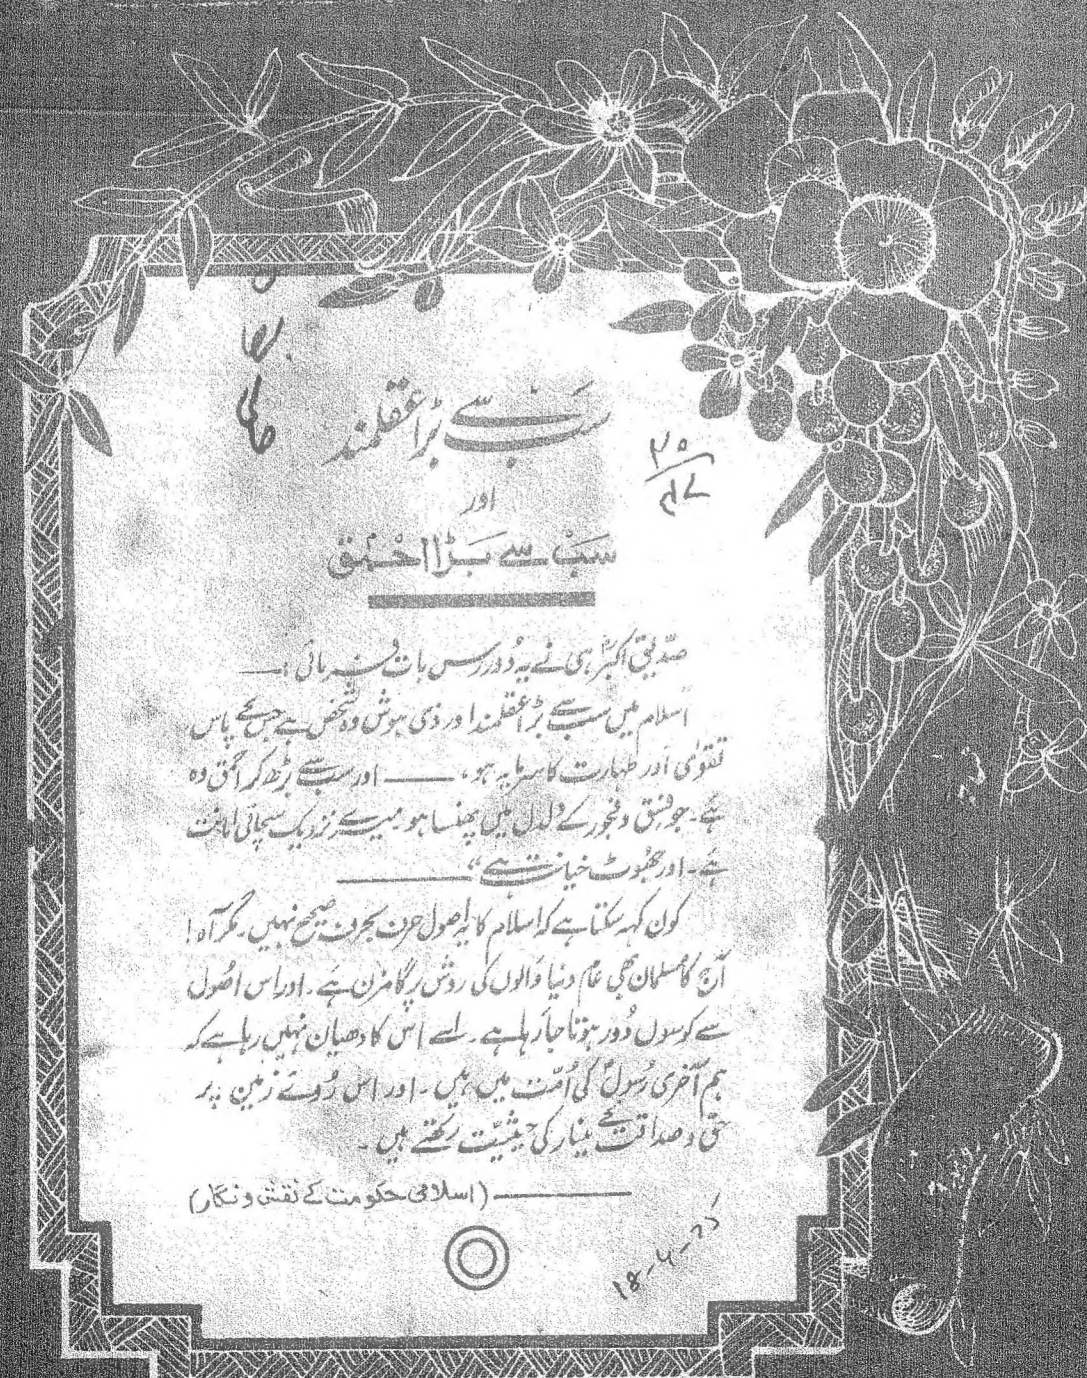 سب سے بڑا عقلمند
اور
سَبْ سے بَڑا احْمق
صدّیقِ اکبرؓ ہی نے یہ دُور رس بات فرمائی :—
اسلام میں سب سے بڑا عقلمند اور ذی ہوش وہ شخص ہے جس کے پاس
تقویٰ اور طہارت کا سرمایہ ہو، —— اور سب سے بڑھ کر احمق وہ
ہے۔ جو فسق و فجور کے دلدل میں پھنسا ہو۔ میرے نزدیک سچائی امانت
ہے۔ اور جھوٹ خیانت ہے“ ————
کون کہہ سکتا ہے کہ اسلام کا یہ اصول حرف بحرف صحیح نہیں۔ مگر آہ!
آج کا مسلمان بھی عام دنیا والوں کی روش پر گامزن ہے۔ اور اس اصُول
سے کوسوں دُور ہوتا جا رہا ہے۔ اسے اس کا دھیان نہیں رہا ہے کہ
ہم آخری رسُولؐ کی اُمّت میں ہیں۔ اور اس رُوئے زمین پر
حق و صداقت کے مینار کی حیثیّت رکھتے ہیں۔
———— (اسلامی حکومت کے نقش و نگار)